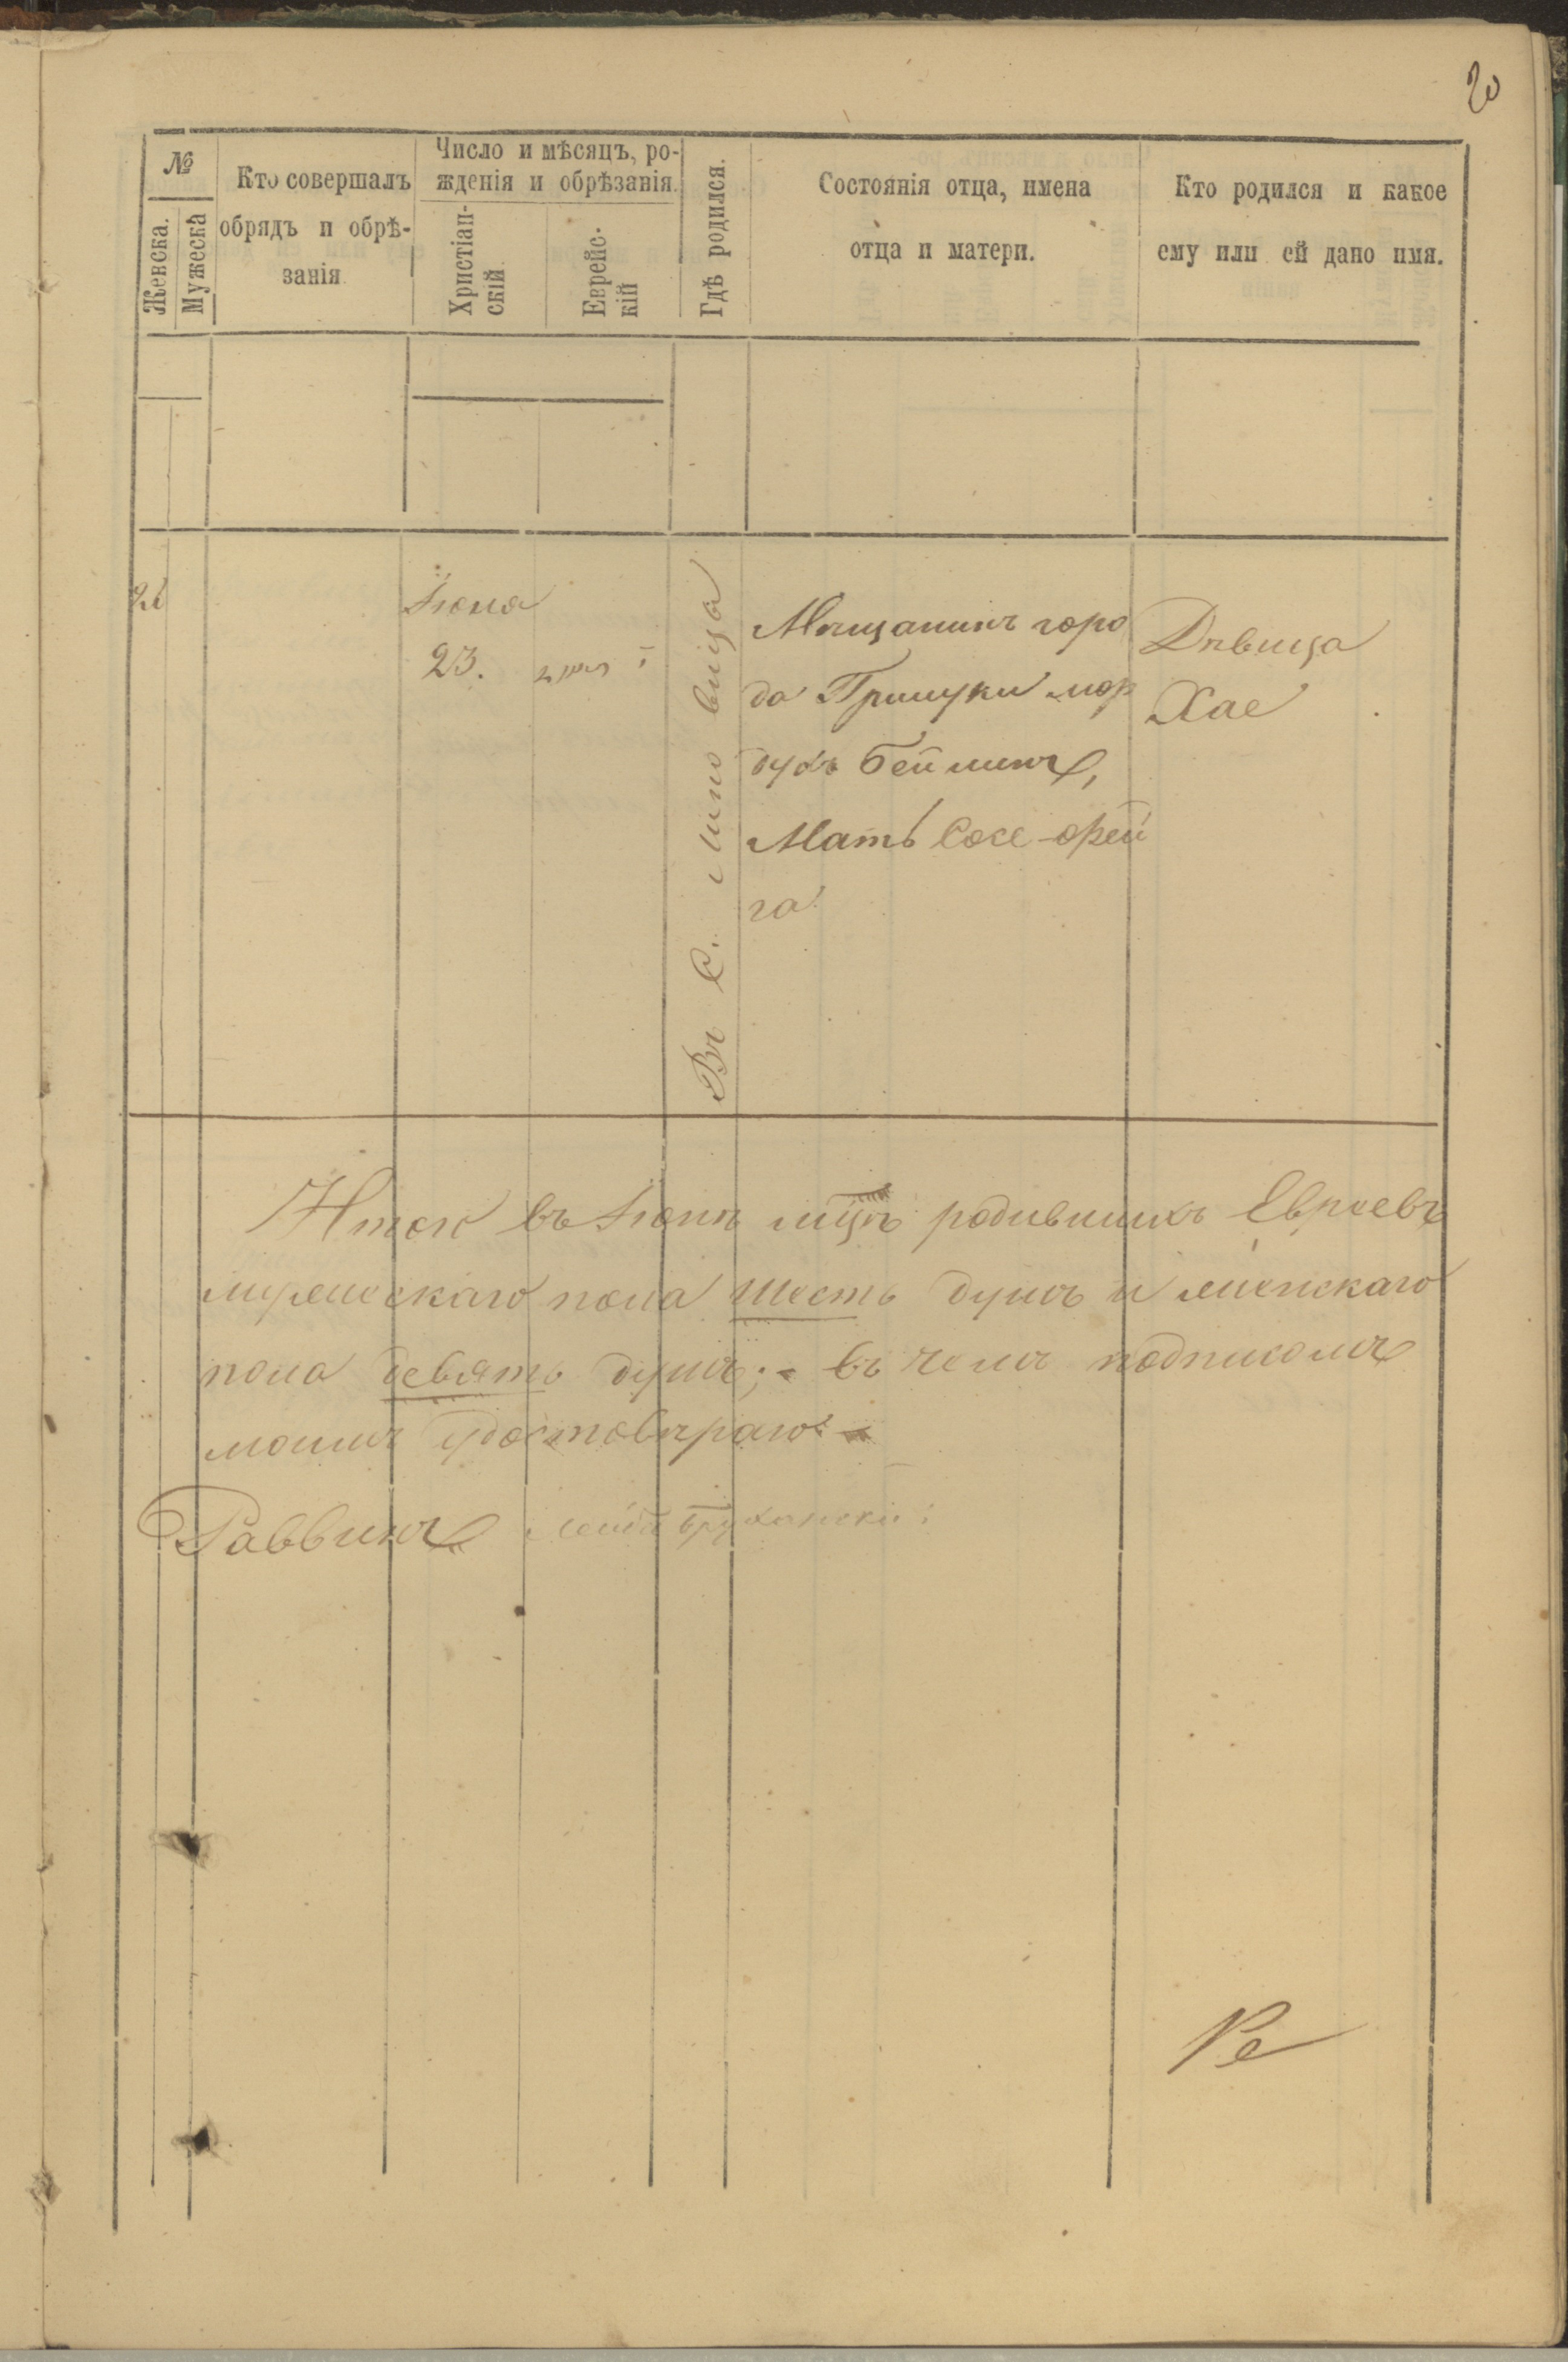 20
№
Женска.
Мужеска
Кто совершалъ
обрядъ и обрѣ-
занія
Число и мѣсяцъ, ро-
жденія и обрѣзанія.
Христіан-
скій
Еврейс-
кій
Гдѣ родился.
Состоянія отца, имена
отца и матери.
Кто родился и какое
ему или ей дано имя.
Іюня
23.
Въ С.
Мѣщанинъ горо
да Прилуки мор
духъ Бейлинъ,
Мать Сосе-Фей
га
Дѣвица
Хае
Итого въ Іюнѣ мцѣ родившихъ Евреевъ
мужескаго пола шесть душъ и женскаго
пола девять душъ;- въ чемъ подписомъ
моимъ удостовѣряю
Раввинъ